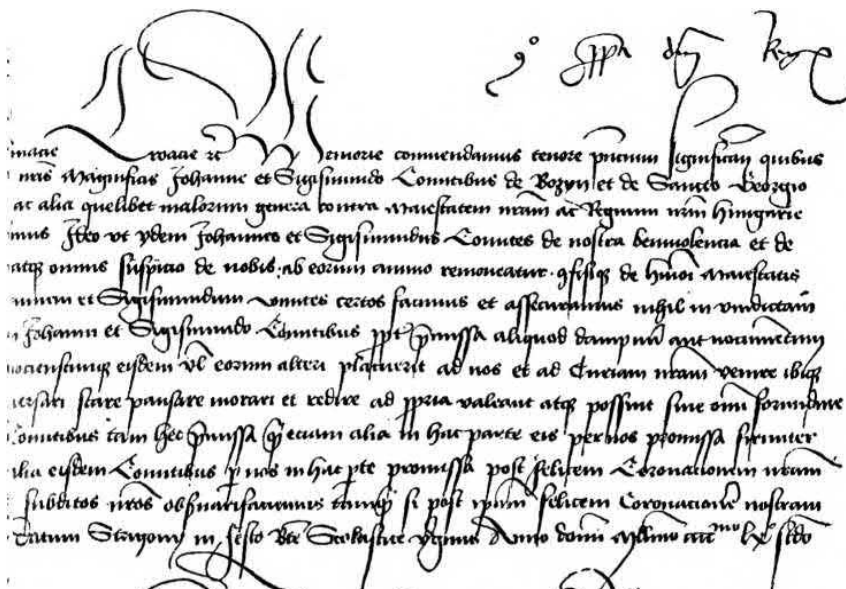 Croacie etc Memorie commendamus tenore pñcium significañ quibus
nris Magnificis Johanne et Sigismundo Comitibus de Bozyn et de Sancto Georgio
ac alia quelibet malorum genera contra Maiestatem nram ac Regnum nrm Hungarie
Ideo vt ydem Johannes et Sigismundus Comites de nostra beniuolencia et de
atqz omnis suspicio de nobis ab eorum animo remoueatur de hmoi Maiestatis
et Sigismundum Comites certos facimus et assecuramus nihil in vindictam
Johanni et Sigismundo Comitibus ppt pmissa aliquod dampnum aut nocumentum
eisdem vl eorum alteri placuerit ad nos et ad Curiam nram venire ibiqz
stare pausare morari et redire ad ppria valeant atqz possint sine omi formidine
Comitibus tam hec pmissa qz eciam alia in hac parte eis per nos promissa firmiter
alia eisdem Comitibus p nos in hac pte promissa post felicem Coronacionem nram
subditos nros obseruari faciemus si post ipam felicem Coronacionē nostram
Datum Strigonij in festo bte Scolastice vginis Anno domi Millimo cccc mo lxo scdo